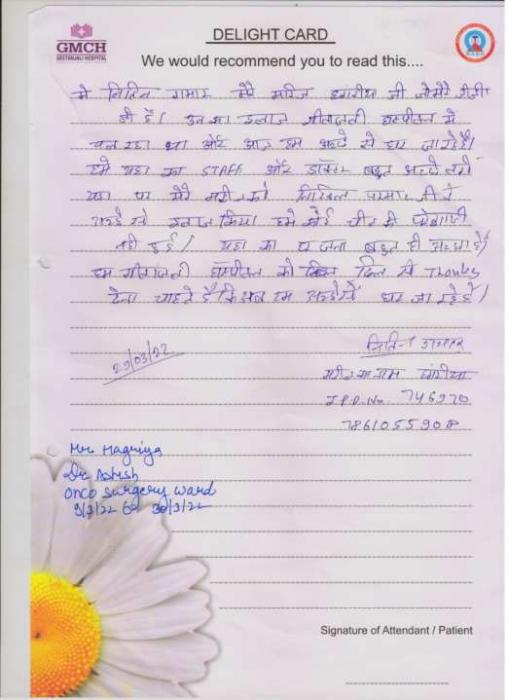 DELIGHT CARD
GMCH
GEETANJALI HOSPITAL
We would recommend you to read this....
मे नितिन मेरे मरीज जी
है। उनका इलाज गीतांजली हास्पीटल में
चल रहा था और आज हम अच्छे से घर जा रहे है।
हमे यहा का STAFF और डॉक्टर बहुत अच्छे लगे
यहा पर मेरे मरीज को जी ने
अच्छे से इलाज किया। हमे कोई चीज की परेशानी
नही हुई। यहा का बहुत ही अच्छा है।
हम गीतांजली हास्पीटल को दिल से Thanks
देना चाहते है कि अब हम अच्छे से घर जा रहे है।
29/03/22
मरीज का नाम
I.P.D. No. 746970
7861055908
Mr Magniya
Dr Ashish
Onco Surgery ward
30/3/22
Signature of Attendant / Patient